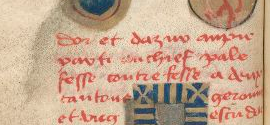 dor et dazur a une
parti en chief pale
fesse contre fesse a deux
cantons geronne
et ung escu d